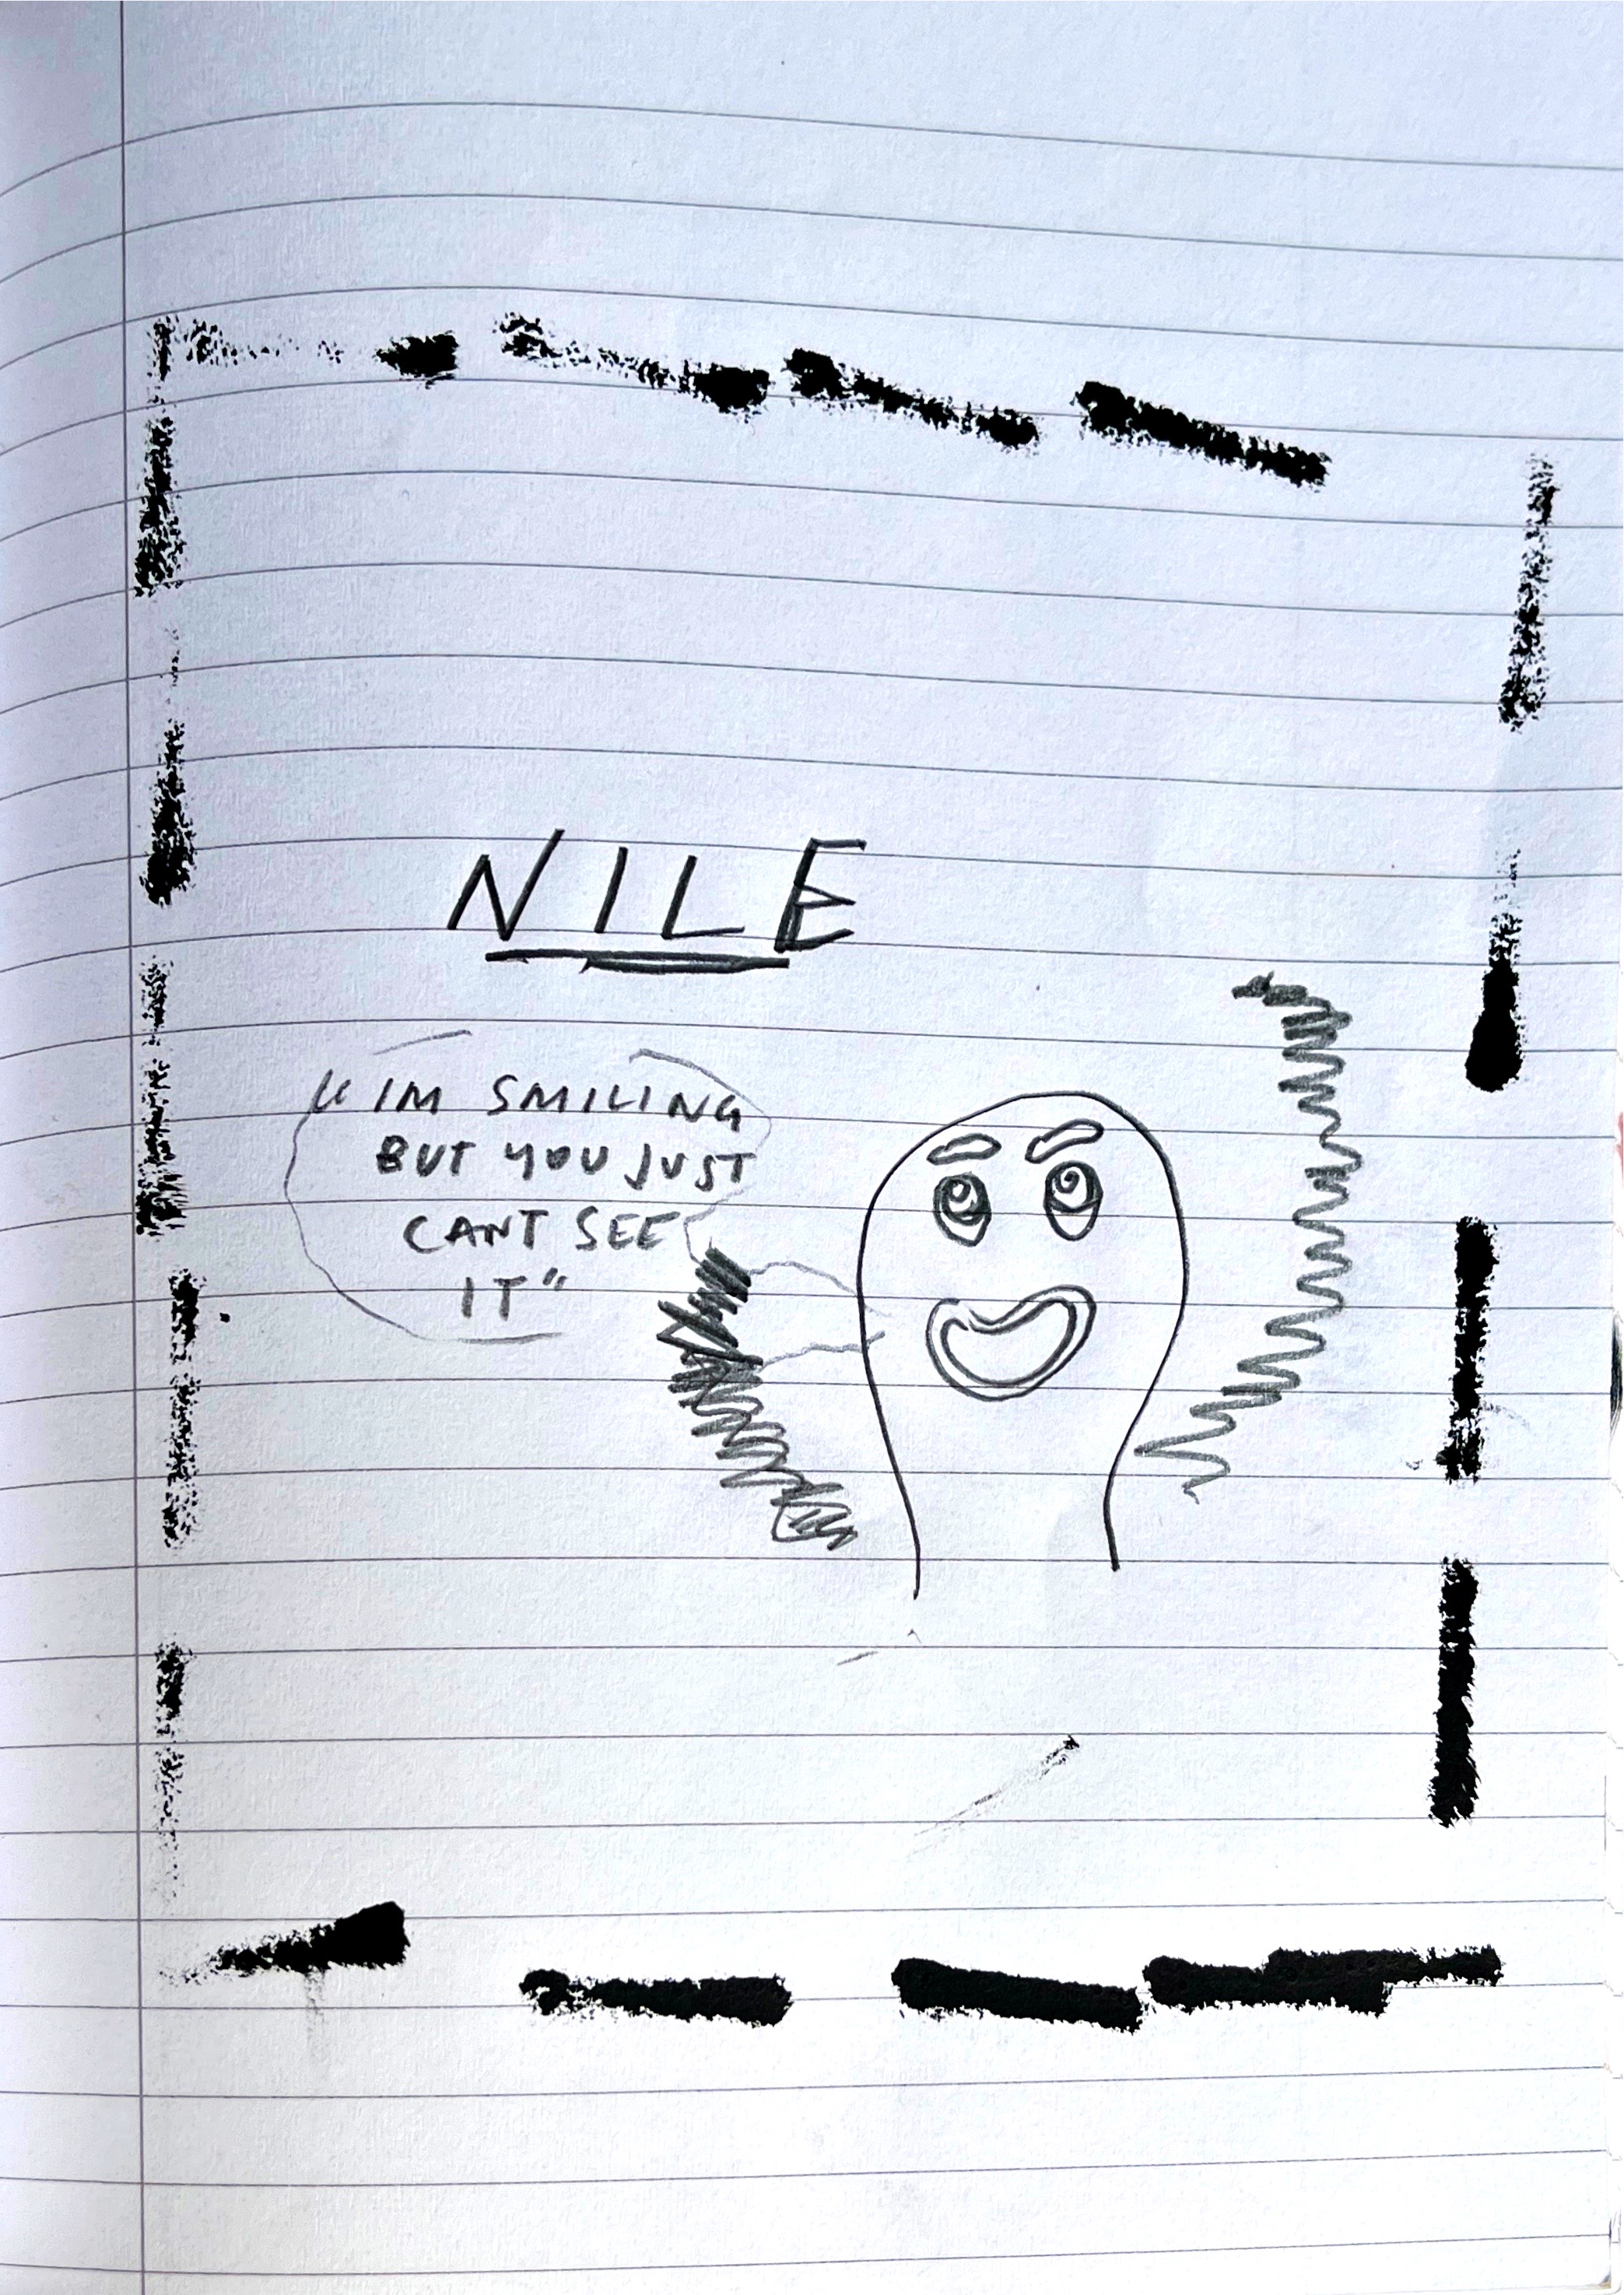 NILE
"IM SMILING
BUT YOU JUST
CANT SEE
IT"